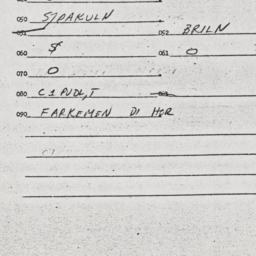 050 STPAKULN
051 052 BRILN
060 $ 061 0
070 0
080 C1 PVDL,T
090 FARKEMEN DI HER